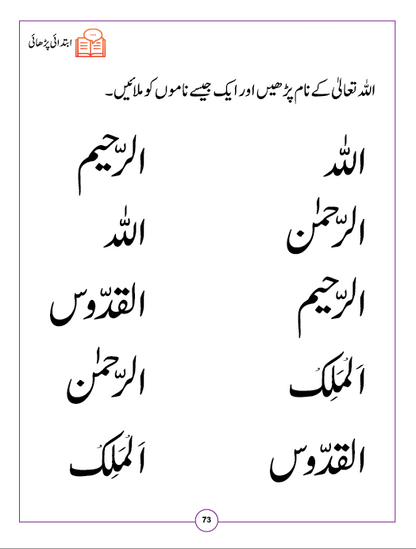 ابتدائی پڑھائی
اللہ تعالیٰ کے نام پڑھیں اور ایک جیسے ناموں کو ملائیں۔
اللہ الرّحیم
الرّحمٰن اللہ
الرّحیم القدّوس
اَلْمَلِکُ الرّحمٰن
القدّوس اَلْمَلِکُ
73